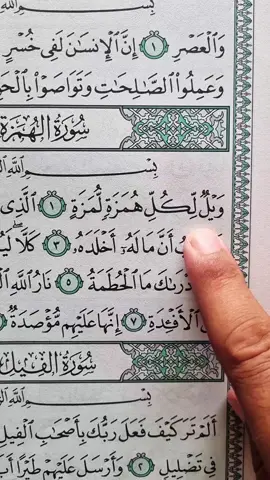 بِسْمِ اللَّهِ
وَالْعَصْرِ ١ إِنَّ الْإِنسَانَ لَفِي خُسْرٍ
وَعَمِلُوا الصَّالِحَاتِ وَتَوَاصَوْا بِالْحَقِّ
سُورَةُ الْهُمَزَةِ
بِسْمِ اللَّهِ
وَيْلٌ لِّكُلِّ هُمَزَةٍ لُّمَزَةٍ ١ الَّذِي
أَنَّ مَالَهُ أَخْلَدَهُ ٣ كَلَّا
مَا الْحُطَمَةُ ٥ نَارُ اللَّهِ
الْأَفْئِدَةِ ٧ إِنَّهَا عَلَيْهِم مُّؤْصَدَةٌ
سُورَةُ الْفِيلِ
بِسْمِ اللَّهِ
أَلَمْ تَرَ كَيْفَ فَعَلَ رَبُّكَ بِأَصْحَابِ الْفِيلِ
فِي تَضْلِيلٍ ٢ وَأَرْسَلَ عَلَيْهِمْ طَيْرًا